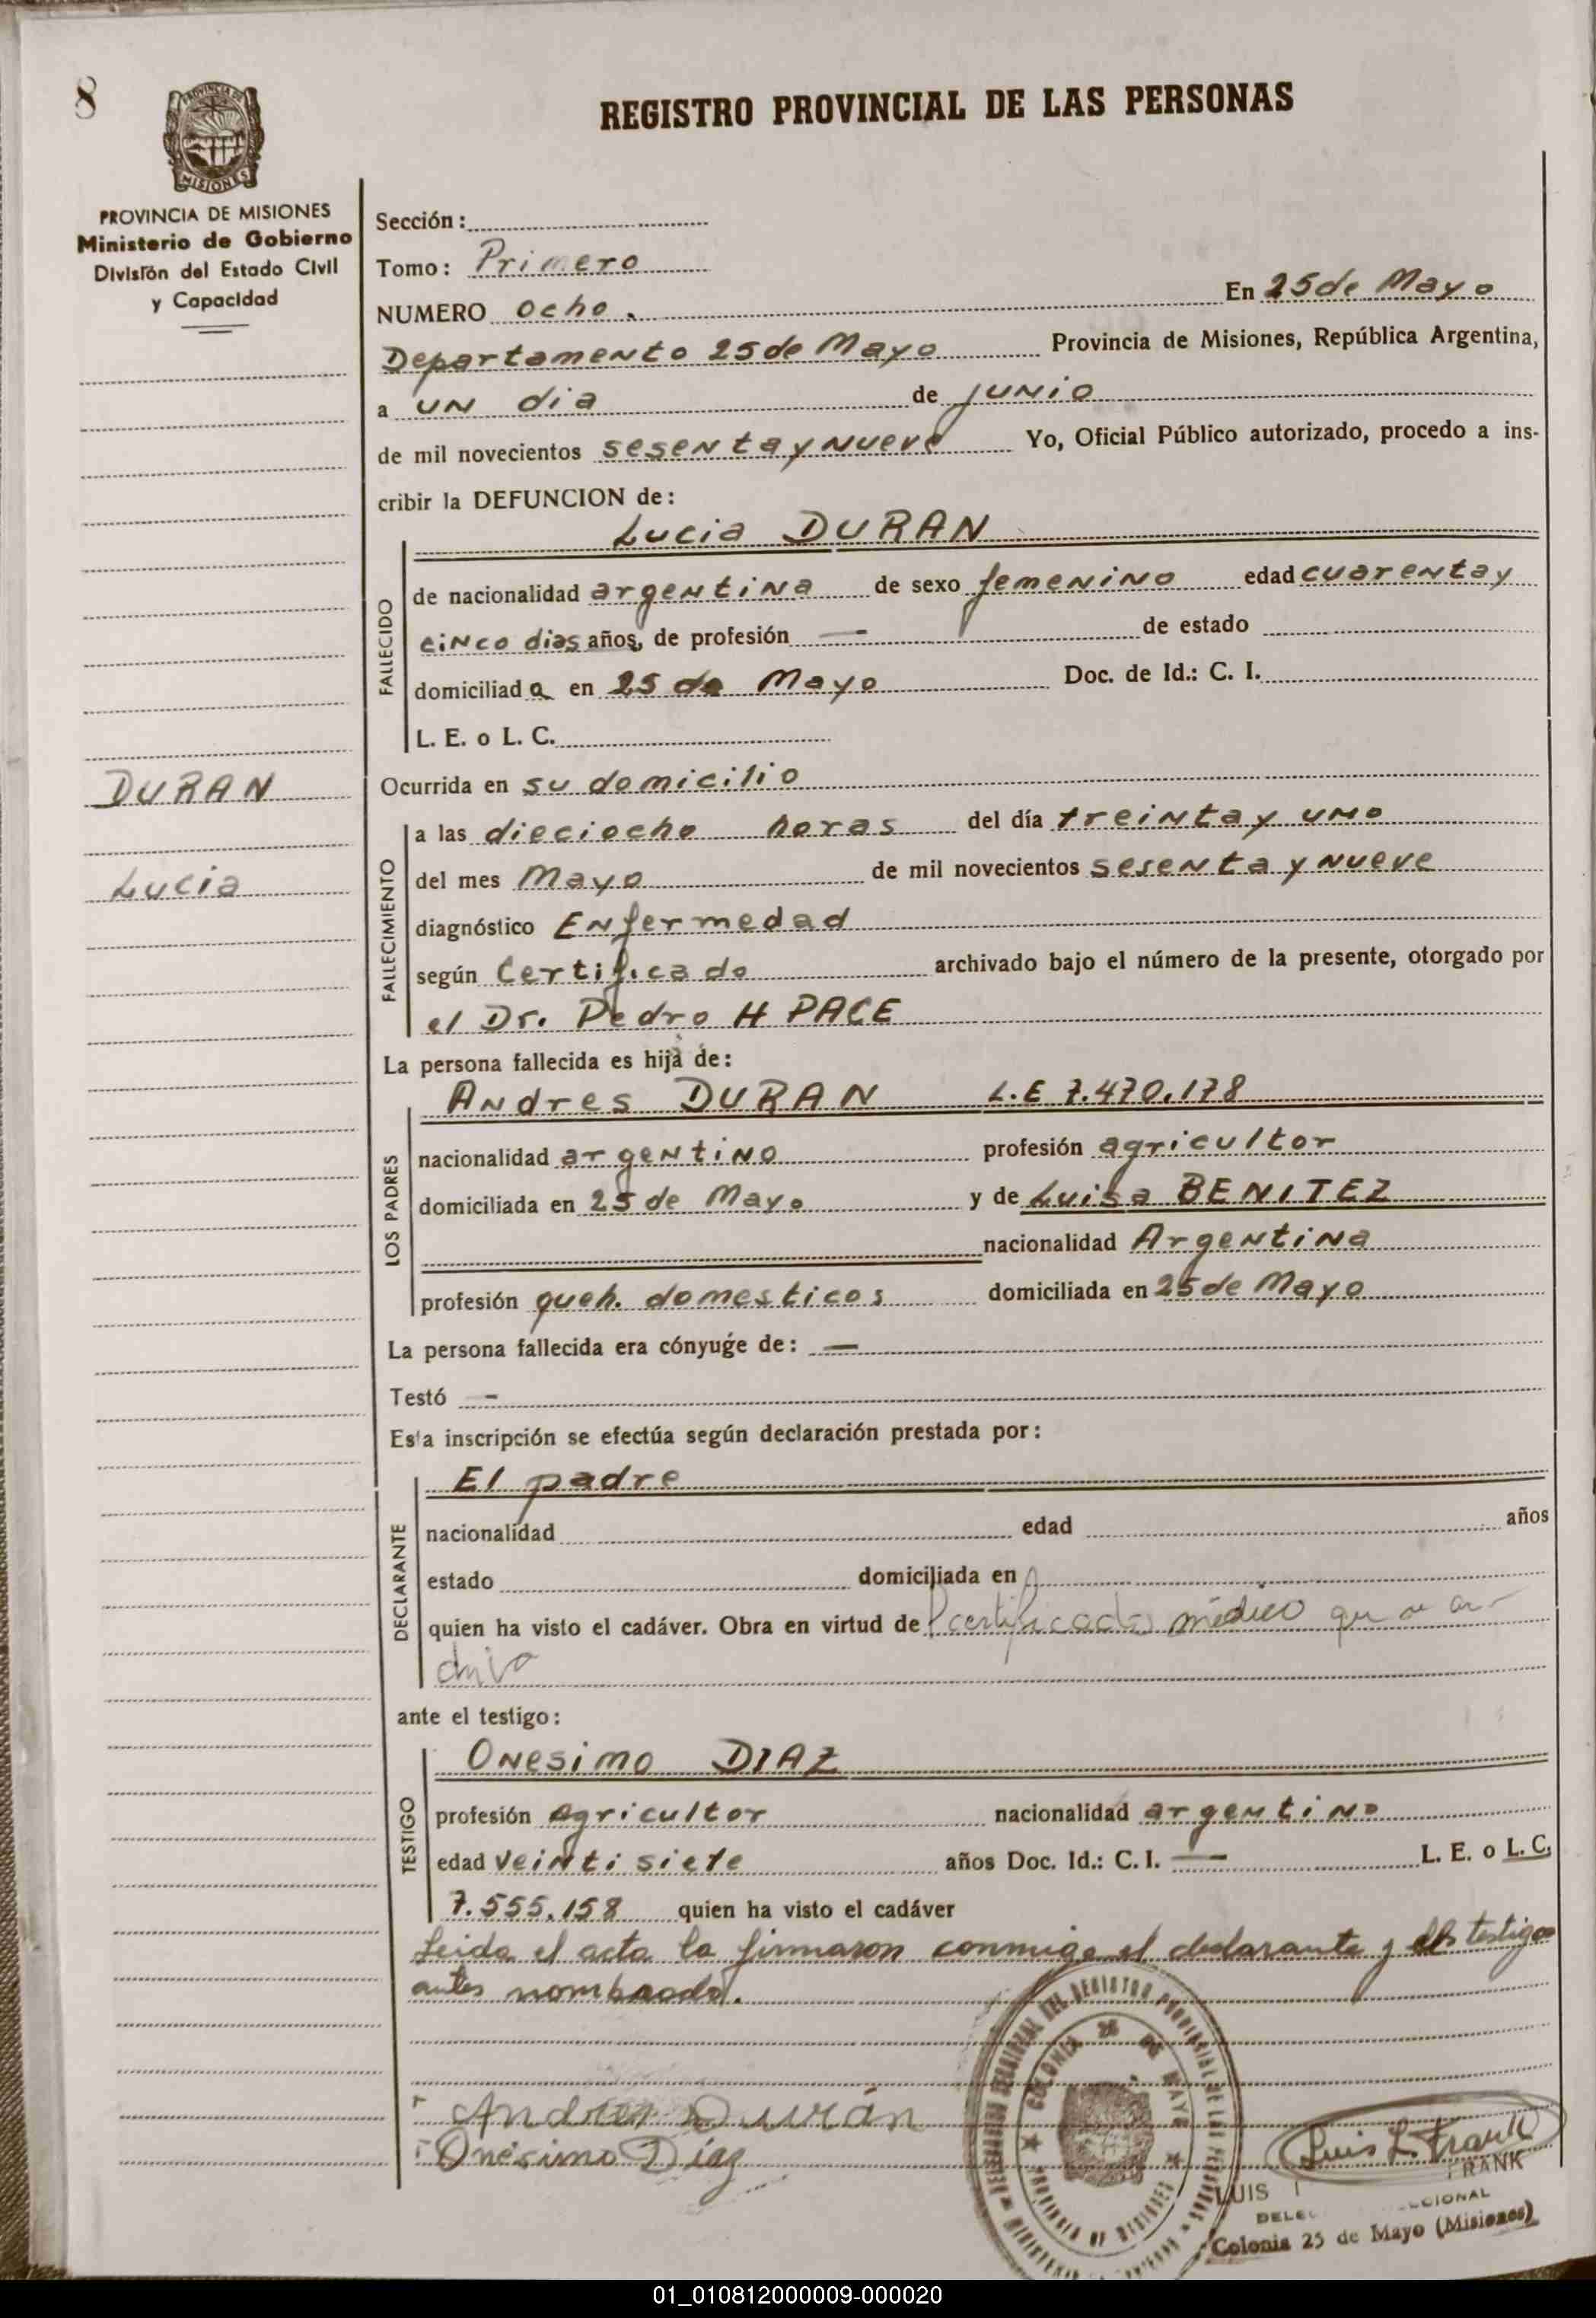 8
REGISTRO PROVINCIAL DE LAS PERSONAS
PROVINCIA DE MISIONES
Ministerio de Gobierno
División del Estado Civil
y Capacidad
Sección:
Tomo: Primero
NUMERO ocho. En 25 de Mayo
Departamento 25 de Mayo Provincia de Misiones, República Argentina,
a un dia de junio
de mil novecientos sesenta y nueve Yo, Oficial Público autorizado, procedo a ins-
cribir la DEFUNCION de:
Lucia DURAN
FALLECIDO
de nacionalidad argentina de sexo femenino edad cuarenta y
cinco dias años, de profesión — de estado
domiciliada en 25 de Mayo Doc. de Id.: C. I.
L. E. o L. C.
DURAN
Lucia
Ocurrida en su domicilio
FALLECIMIENTO
a las dieciocho horas del día treinta y uno
del mes Mayo de mil novecientos sesenta y nueve
diagnóstico Enfermedad
según Certificado archivado bajo el número de la presente, otorgado por
el Dr. Pedro H PACE
La persona fallecida es hija de:
LOS PADRES
Andres DURAN L.E 7.470.178
nacionalidad argentino profesión agricultor
domiciliada en 25 de Mayo y de Luisa BENITEZ
nacionalidad Argentina
profesión queh. domesticos domiciliada en 25 de Mayo
La persona fallecida era cónyuge de: —
Testó —
Esta inscripción se efectúa según declaración prestada por:
DECLARANTE
El padre
nacionalidad edad años
estado domiciliada en
quien ha visto el cadáver. Obra en virtud de certificado médico que se ar-
chiva
ante el testigo:
TESTIGO
Onesimo DIAZ
profesión agricultor nacionalidad argentino
edad veinti siete años Doc. Id.: C. I. — L. E. o L. C.
7.555.158 quien ha visto el cadáver
Leida el acta la firmaron conmigo el declarante y testigo
antes nombrado.
Andres Durán
Onésimo Díaz
COLONIA 25 DE MAYO
PROVINCIA DE MISIONES
Luis L Frank
LUIS FRANK
Colonia 25 de Mayo (Misiones)
01_010812000009-000020